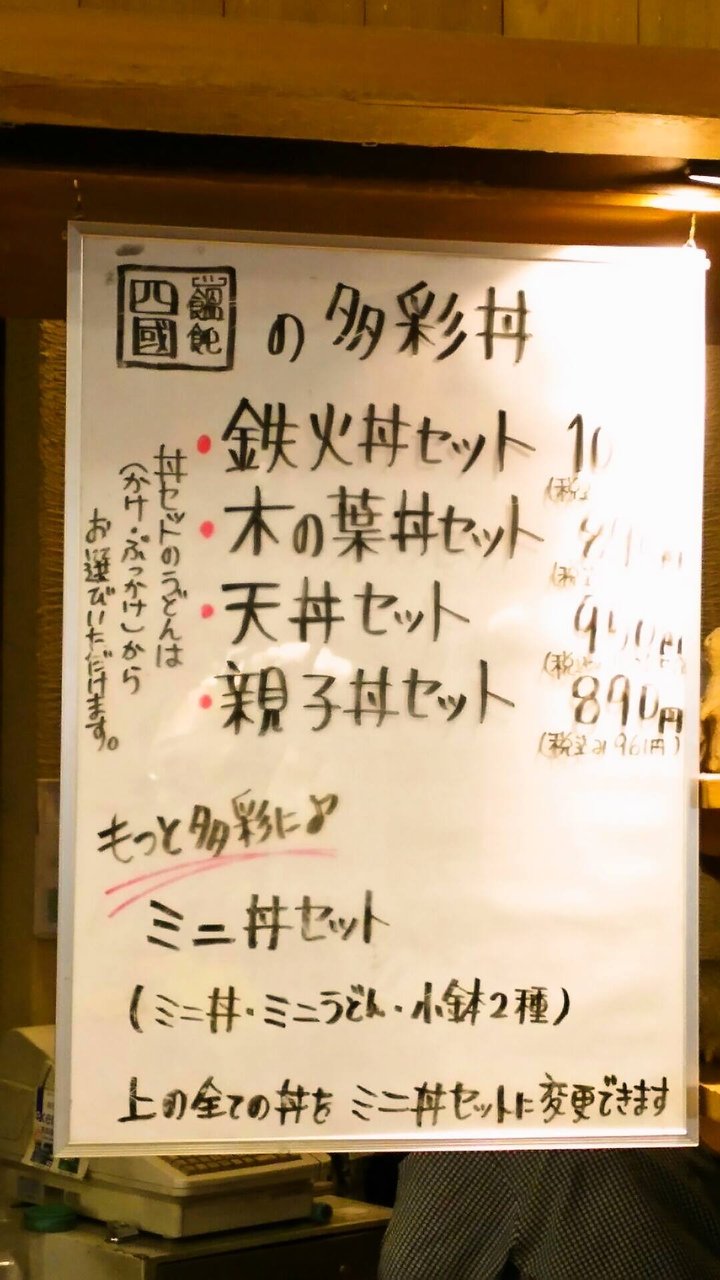 饂飩
四國
の多彩丼
・鉄火丼セット 10
(税
・木の葉丼セット
(税
・天丼セット 950円
(税
・親子丼セット 890円
(税込み961円)
丼セットのうどんは
(かけ・ぶっかけ)から
お選びいただけます。
もっと多彩に♪
ミニ丼セット
(ミニ丼・ミニうどん・小鉢2種)
上の全ての丼を ミニ丼セットに変更できます